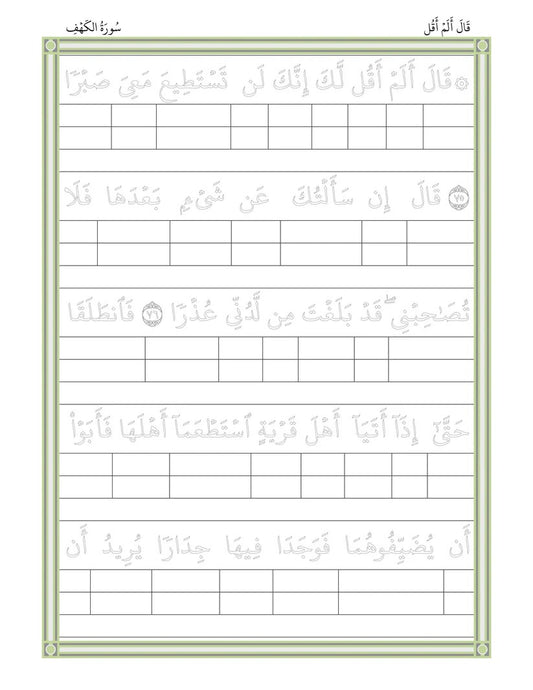 قَالَ أَلَمْ أَقُل
سُورَةُ الكَهْفِ
۞ قَالَ أَلَمْ أَقُل لَّكَ إِنَّكَ لَن تَسْتَطِيعَ مَعِيَ صَبْرًا
۝٧٥ قَالَ إِن سَأَلْتُكَ عَن شَىْءٍۭ بَعْدَهَا فَلَا
تُصَـٰحِبْنِى ۖ قَدْ بَلَغْتَ مِن لَّدُنِّى عُذْرًا ۝٧٦ فَٱنطَلَقَا
حَتَّىٰٓ إِذَآ أَتَيَآ أَهْلَ قَرْيَةٍ ٱسْتَطْعَمَآ أَهْلَهَا فَأَبَوْا۟
أَن يُضَيِّفُوهُمَا فَوَجَدَا فِيهَا جِدَارًا يُرِيدُ أَن